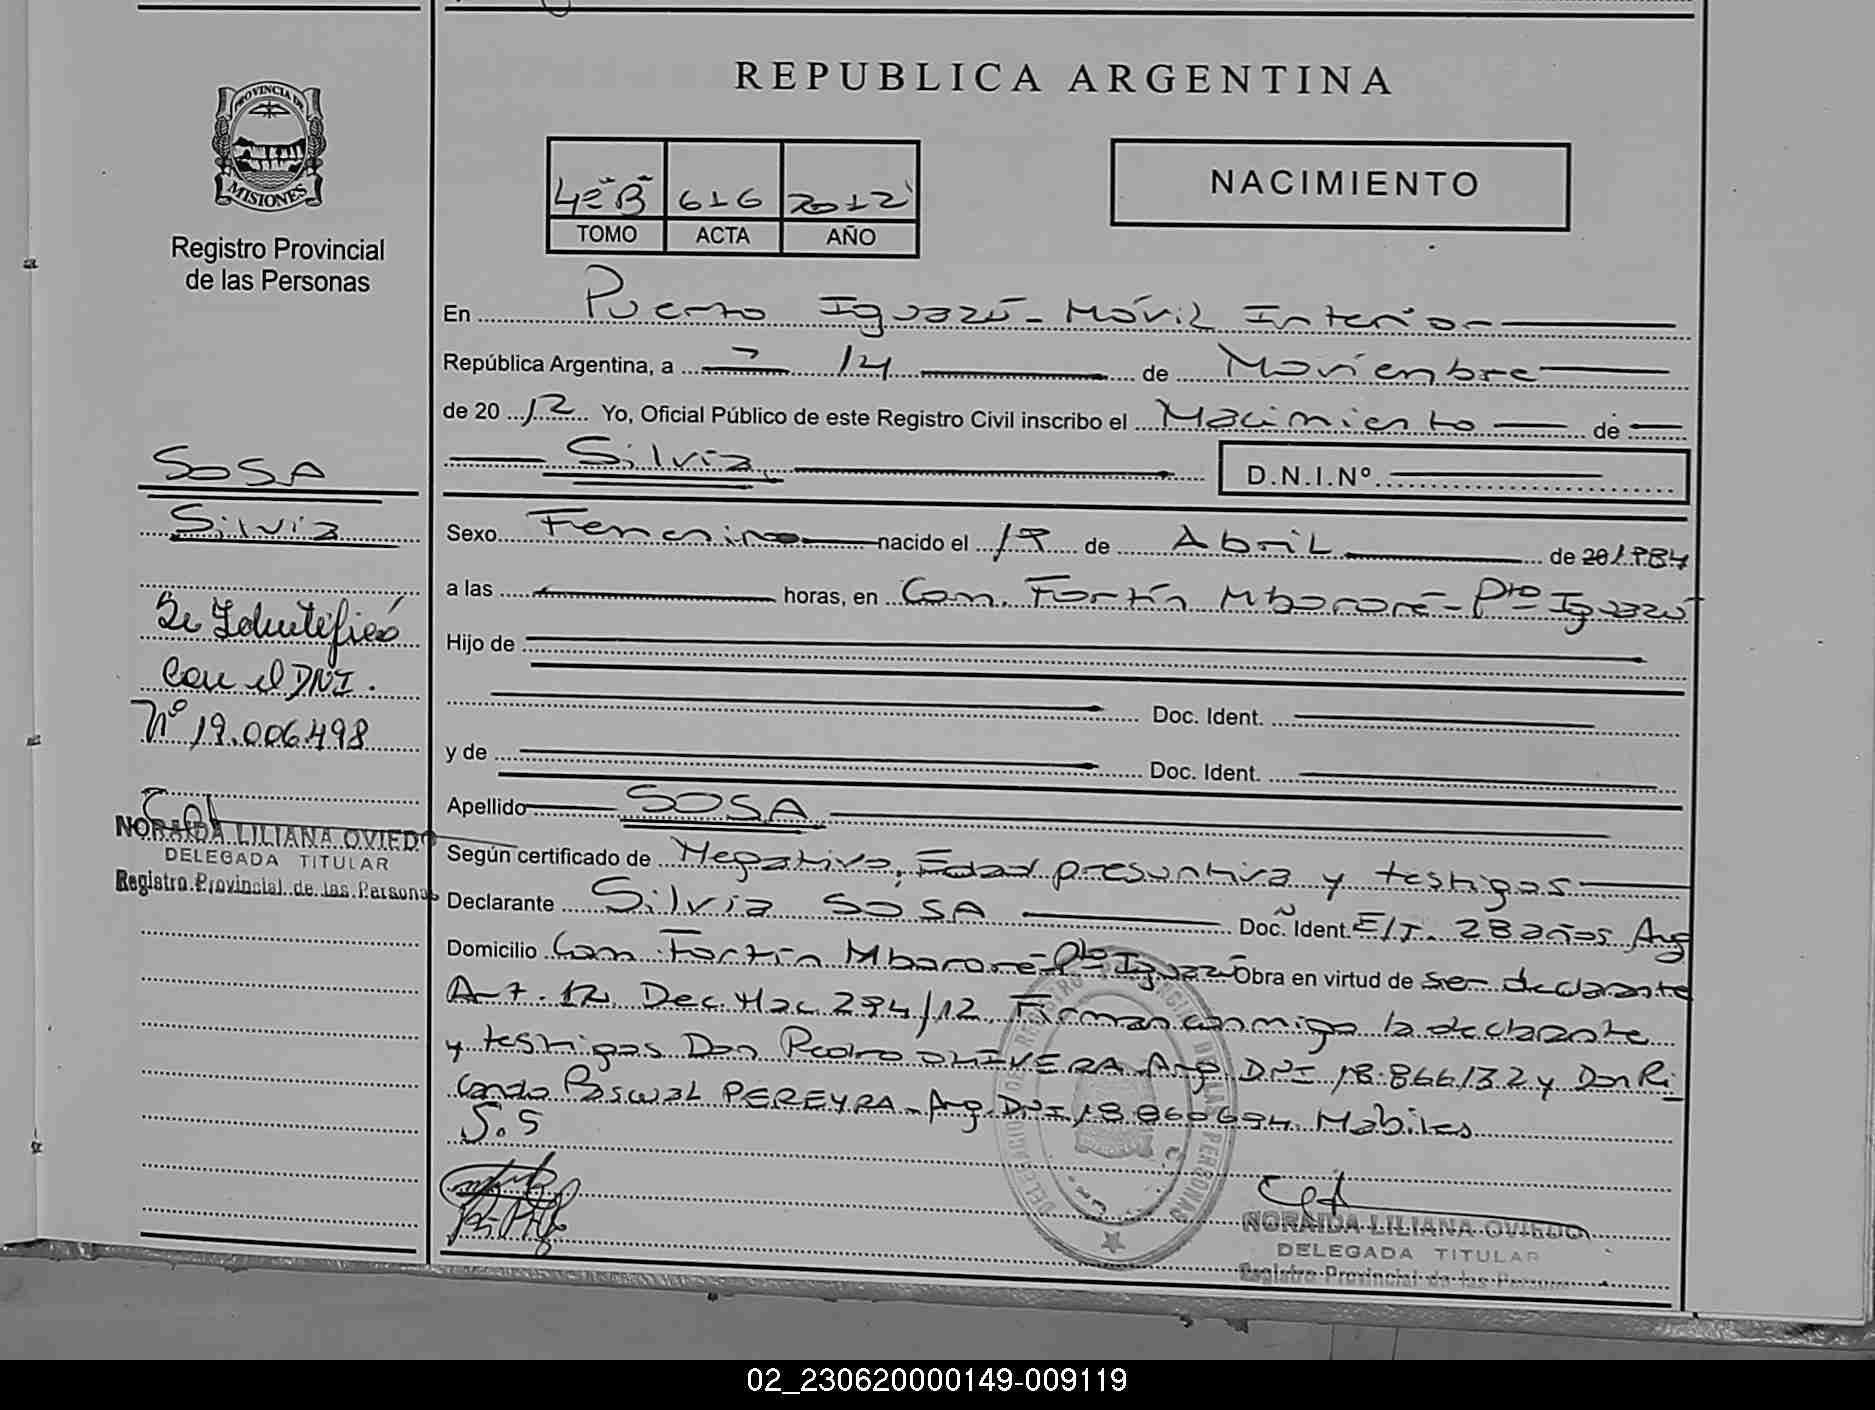 REPUBLICA ARGENTINA
PROVINCIA DE
MISIONES
Registro Provincial
de las Personas
4º "B" 616 2012
TOMO ACTA AÑO
NACIMIENTO
En Puerto Iguazú - Móvil Interior
República Argentina, a 14 de Noviembre
de 20 12 Yo, Oficial Público de este Registro Civil inscribo el Nacimiento de
Silvia D.N.I.Nº
Sexo Femenino nacido el 19 de Abril de 20 1984
a las horas, en Com. Fortín Mbororé - Pto Iguazú
Hijo de
Doc. Ident.
y de Doc. Ident.
Apellido SOSA
Según certificado de Negativo, Edad presuntiva y testigos
Declarante Silvia SOSA Doc. Ident. E/T. 28 años Arg
Domicilio Com Fortín Mbororé - Pto Iguazú Obra en virtud de ser declarante
Art. 12 Dec. Nac. 294/12. Firman conmigo la declarante
y testigos Don Pedro OLIVERA Arg. DNI 18.866132 y Don Ri
cardo Pascual PEREYRA - Arg. DNI 18.860694. Hábiles
S.S
NORAIDA LILIANA OVIEDO
DELEGADA TITULAR
Registro Provincial de las Personas
SOSA
Silvia
Se Identificó
con el DNI.
Nº 19.006.498
NORAIDA LILIANA OVIEDO
DELEGADA TITULAR
Registro Provincial de las Personas
02_230620000149-009119